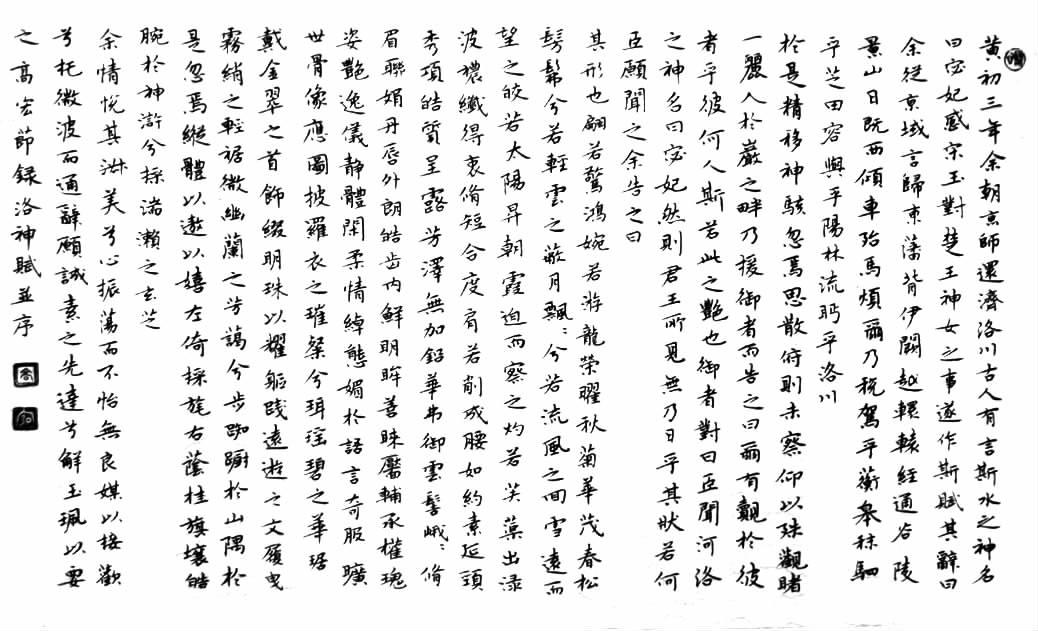 黄初三年余朝京師還濟洛川古人有言斯水之神名
曰宓妃感宋玉對楚王神女之事遂作斯賦其辭曰
余從京域言歸東藩背伊闕越轘轅經通谷陵
景山日既西傾車殆馬煩爾乃税駕乎蘅皋秣駟
乎芝田容與乎陽林流眄乎洛川
於是精移神駭忽焉思散俯則未察仰以殊觀睹
一麗人於巖之畔乃援御者而告之曰爾有覿於彼
者乎彼何人斯若此之艷也御者對曰臣聞河洛
之神名曰宓妃然則君王所見無乃日乎其狀若何
臣願聞之余告之曰
其形也翩若驚鴻婉若游龍榮曜秋菊華茂春松
髣髴兮若輕雲之蔽月飄:兮若流風之回雪遠而
望之皎若太陽昇朝霞迫而察之灼若芙蕖出渌
波穠纖得衷脩短合度肩若削成腰如約素延頸
秀項皓質呈露芳澤無加鉛華弗御雲髻峨:脩
眉聯娟丹唇外朗皓齒内鮮明眸善睞靨輔承權瑰
姿艷逸儀静體閑柔情綽態媚於語言奇服曠
世骨像應圖披羅衣之璀粲兮珥瑶碧之華琚
戴金翠之首飾綴明珠以耀軀踐遠遊之文履曳
霧綃之輕裾微幽蘭之芳藹兮步踟躕於山隅於
是忽焉縱體以遨以嬉左倚採旄右蔭桂旗壤皓
腕於神滸兮採湍瀨之玄芝
余情悅其淑美兮心振蕩而不怡無良媒以接歡
兮托微波而通辭願誠素之先達兮解玉珮以要
之高宏節録洛神賦並序